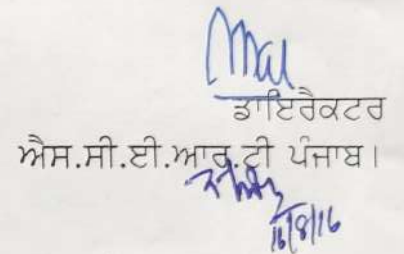 ਡਾਇਰੈਕਟਰ
ਐਸ.ਸੀ.ਈ.ਆਰ.ਟੀ ਪੰਜਾਬ।
16/8/16